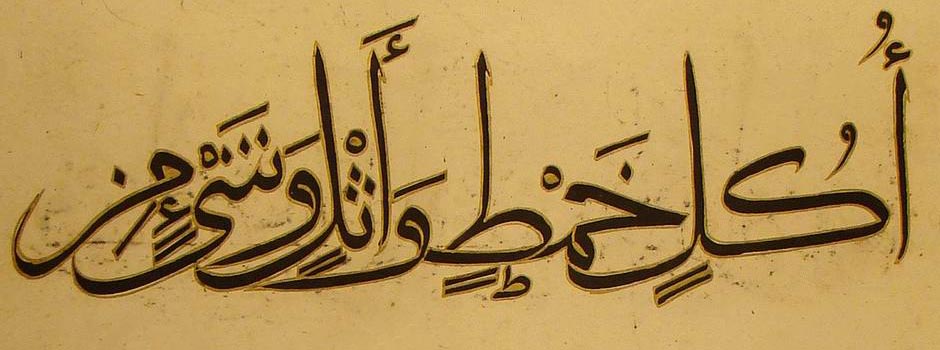 أُكُلٍ خَمْطٍ وَأَثْلٍ وَشَىْءٍ مِن